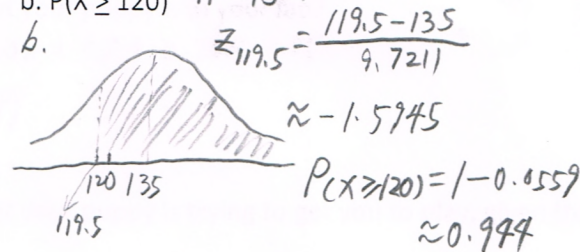 b. P(X ≥ 120)
b.
Z₁₁₉.₅ = (119.5 - 135) / 9.7211
≈ -1.5945
120 135
119.5
P(X≥120) = 1 - 0.0559
≈ 0.944